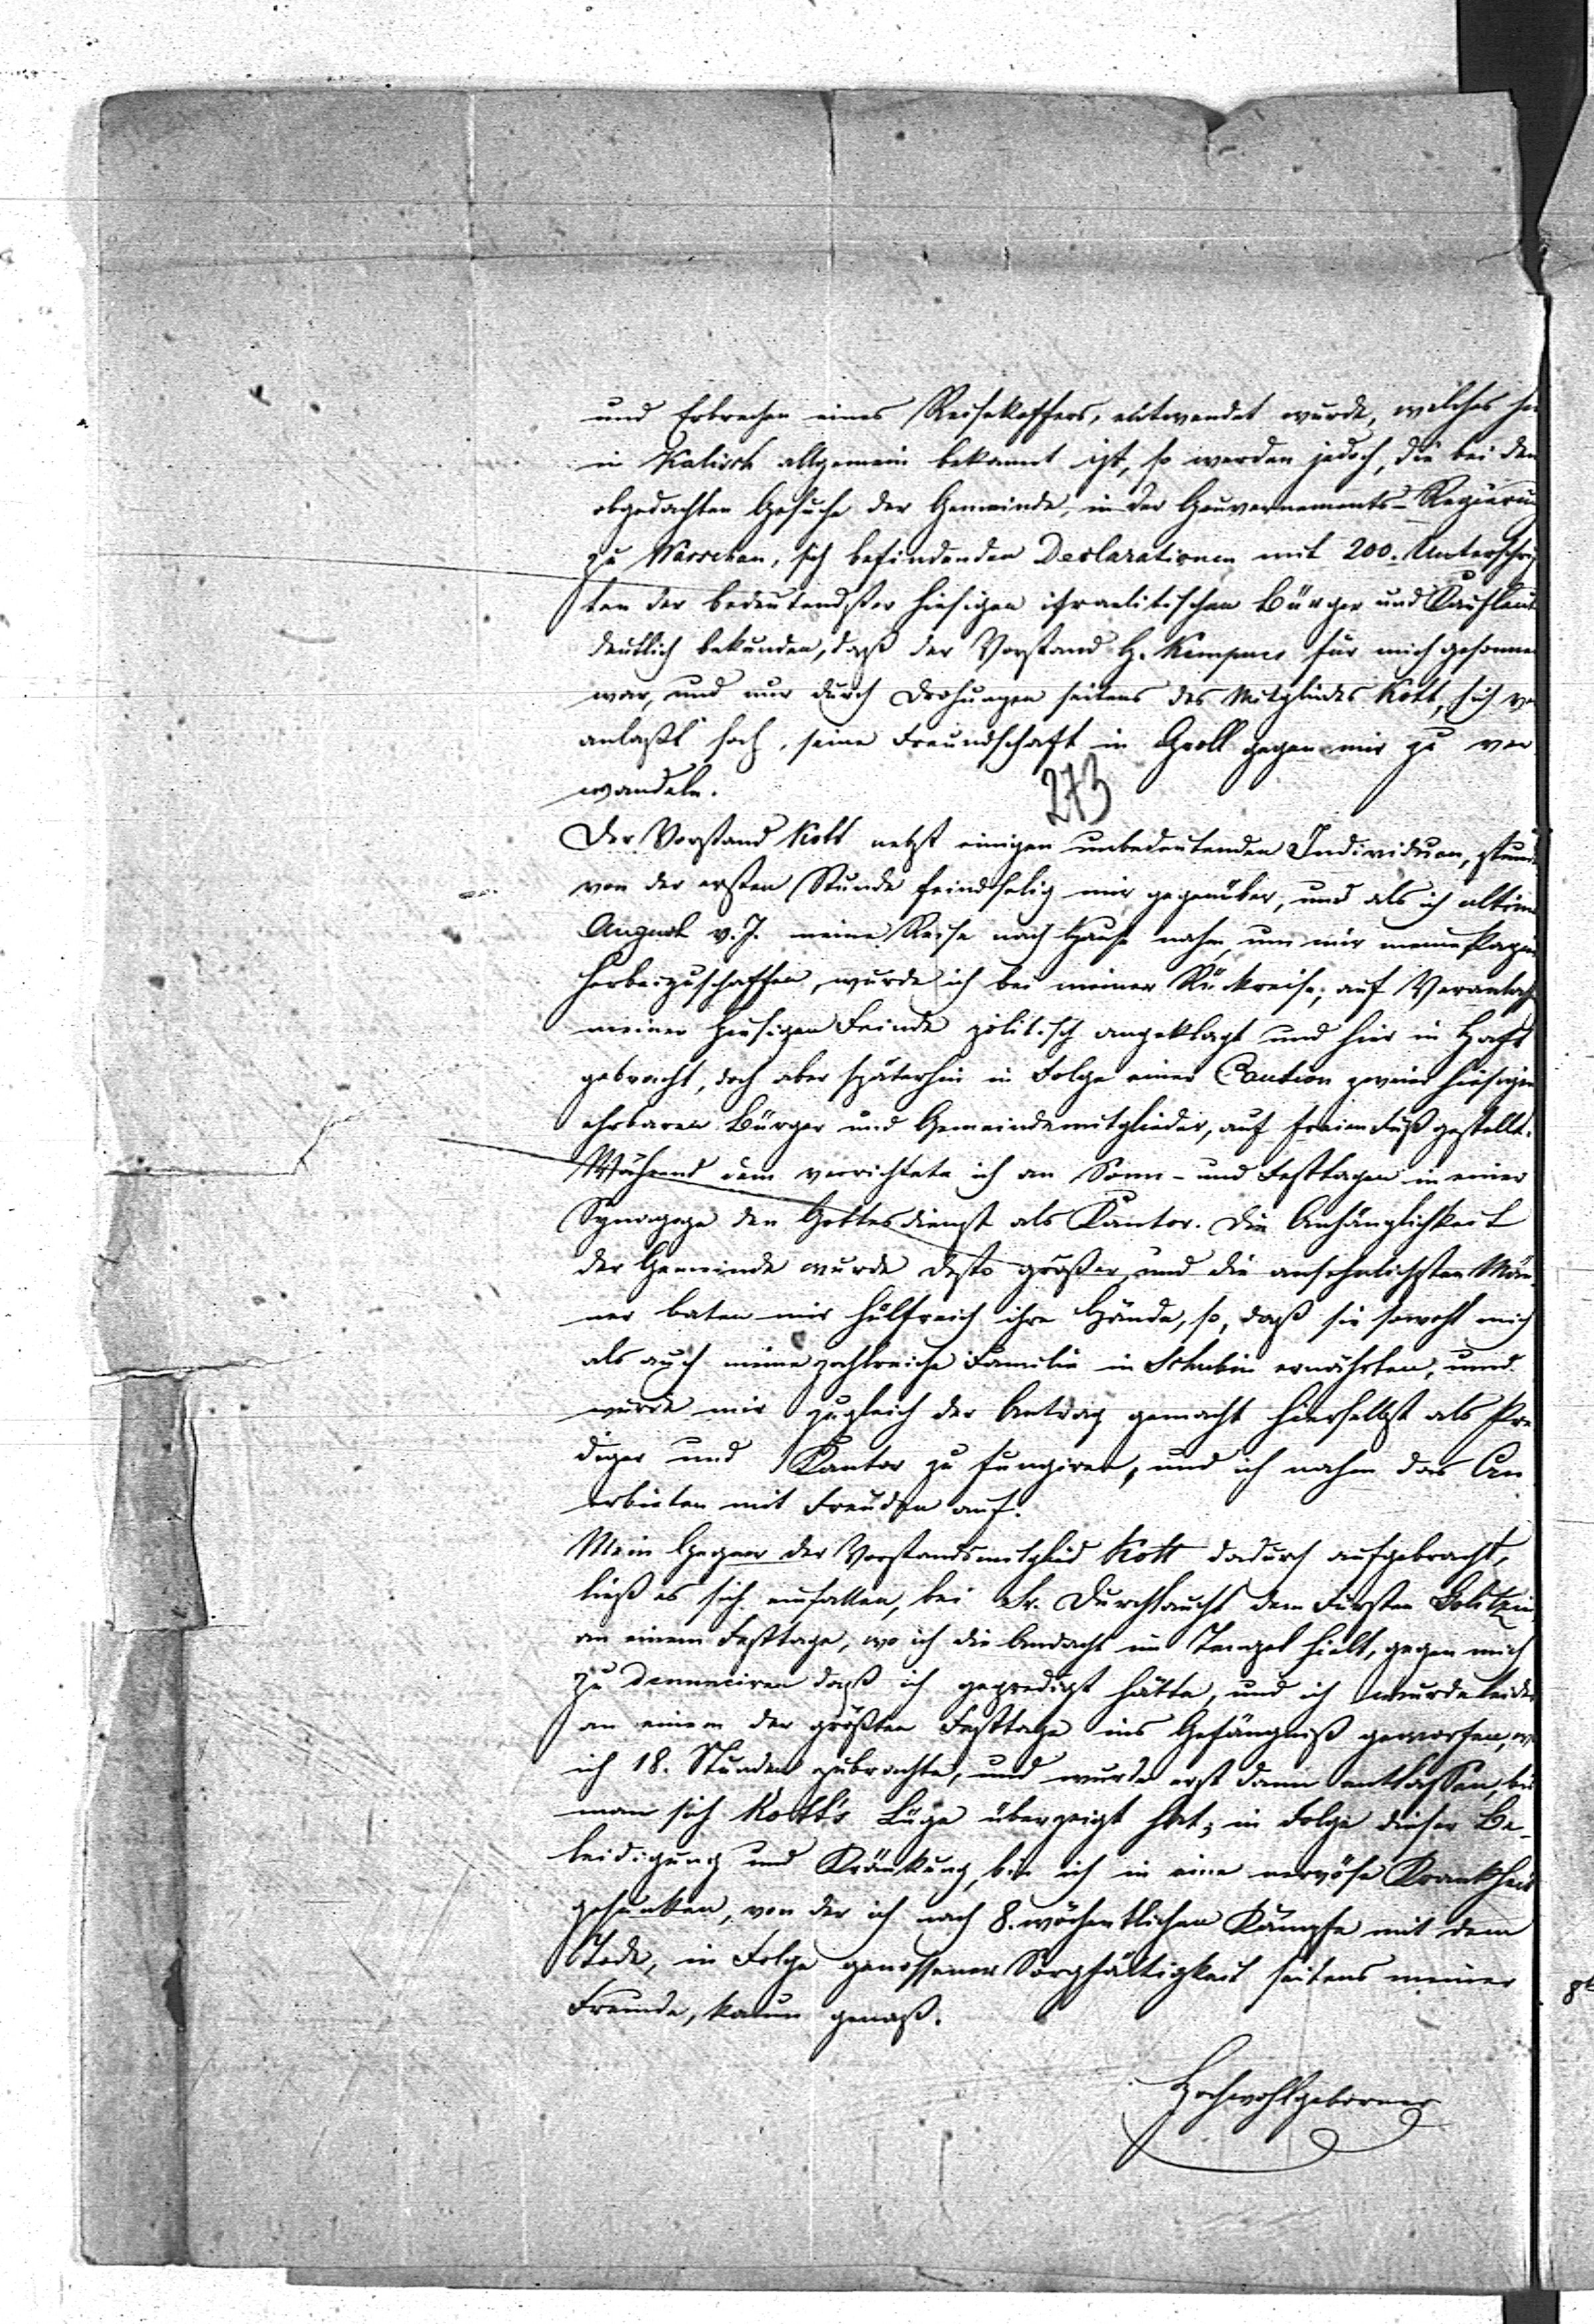 und Erbrechen eines Reisekoffers, entwendet wurde, welches hie
in Kalisch allgemein bekannt ist, so werden jedoch, die bei dem
obgedachten Gesuche der Gemeinde, in der Gouvernements-Regierun
zu Warschau, sich befindenden Declarationen mit 200. Unterschrif
ten der bedeutendster hiesigen israelitischen Bürger und Kaufleute
deutlich bekunden, daß der Vorstand H. Kempner für mich gesonnen
war, und nur durch Drohungen seitens des Mitgliedes Kott, sich ver
anlaßt sah, seine Freundschaft in Groll gegen mir zu ver
wandeln.
273
Der Vorstand Kott nebst einigen unbedeutenden Individuen, stund
von der ersten Stunde feindselig mir gegenüber, und als ich ultimo
August v. J. meine Reise nach Hause nahm, um mir meine Papie
herbeizuschaffen, wurde ich bei meiner Rükreise, auf Veranlass
meiner hiesigen Feinde politisch angeklagt und hier in Haft
gebracht, doch aber späterhin in Folge einer Caution zweier hiesigen
ehrbaren Bürger und Gemeindemitglieder, auf freien Fuß gestellt.
Während dem verrichtete ich an Sonn- und Festtagen in einer
Synagoge den Gottesdienst als Kantor. Die Anhänglichkeit
der Gemeinde wurde desto größer, und die ansehnlichsten Män
ner baten mir hülfreich ihre Hände, so, daß sie sowohl mich
als auch meine zahlreiche Familie in Schubin ernährten, und
wurde mir zugleich der Antrag gemacht hierselbst als Pre
diger und Kantor zu fungiren, und ich nahm das An
erbieten mit Freuden auf.
Mein Gegner der Vorstandsmitglied Kott dadurch aufgebracht,
ließ es sich einfallen, bei Sr. Durchlaucht dem Fürsten Golitzin
an einem Festtage, wo ich die Andacht im Tempel hielt, gegen mich
zu denunciren daß ich gepredigt hätte, und ich wurde leider
an einem der größten Festtage ins Gefängniß geworfen, wo
ich 18. Stunden zubrachte, und wurde erst dann entlassen, bis
man sich Kott's Lüge überzeigt hat; in Folge dieser Be-
leidigung und Kränkung, bin ich in eine nervöse Krankheit
gesunken, von der ich nach 8. wöchentlichen Kämpfe mit dem
Tode, in Folge genossener Sorgfältigkeit seitens meiner
Freunde, kaum genaß.
Hochwohlgeborner